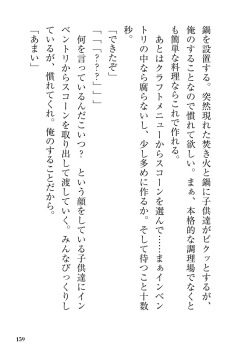 鍋を設置する。突然現れた焚き火と鍋に子供達がビクッとするが、
俺のすることなので慣れて欲しい。まぁ、本格的な調理場でなくと
も簡単な料理ならこれで作れる。
あとはクラフトメニューからスコーンを選んで……まぁインベン
トリの中なら腐らないし、少し多めに作るか。そして待つこと十数
秒。
「できたぞ」
「「「？？？」」」
何を言っているんだこいつ？　という顔をしている子供達にイン
ベントリからスコーンを取り出して渡していく。みんなびっくりし
ているが、慣れてくれ。俺のすることだから。
「あまい」
159